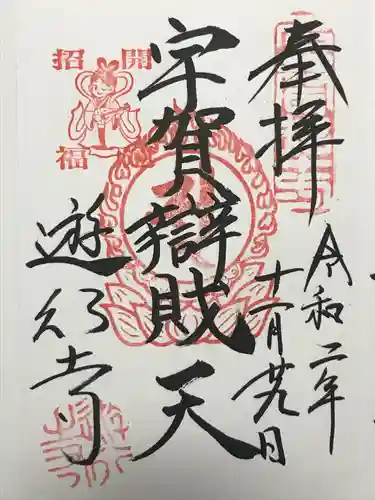 奉拝
令和二年
十一月廿九日
宇賀辯賊天
遊行寺
開
招
福